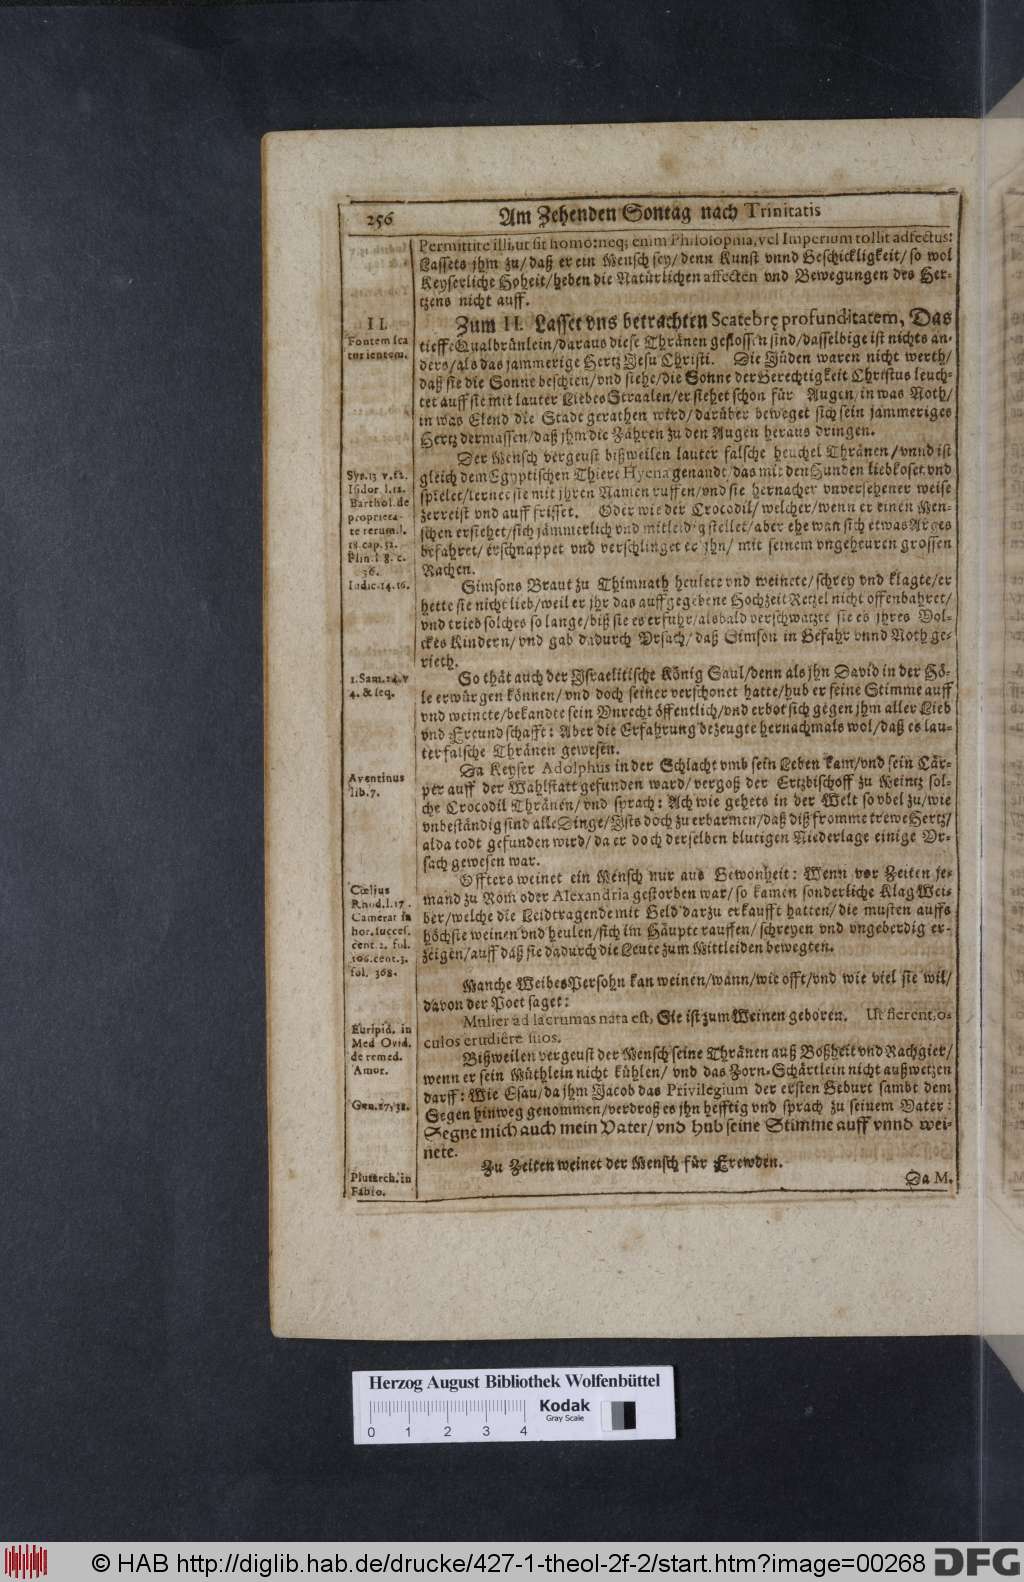 256
Am Zehenden Sontag nach Trinitatis
Permittite illi, ut sit homo: neq; enim Philosophia, vel Imperium tollit adfectus:
Lassets jhm zu/ daß er ein Mensch sey/ denn Kunst vnnd Geschickligkeit/ so wol
Keyserliche Hoheit/ heben die Natürlichen affecten vnd Bewegungen des Her-
tzens nicht auff.
II.
Fontem sca
turientem.
Zum II. Lasset vns betrachten Scatebrę profunditatem, Das
tieffe Qualbrünlein/ daraus diese Thränen geflossen sind/ dasselbige ist nichts an-
ders/ als das jammerige Hertz Jesu Christi. Die Jüden waren nicht werth/
daß sie die Sonne beschien/ vnd siehe/ die Sonne der Gerechtigkeit Christus leuch-
tet auff sie mit lauter Liebes Straalen/ er siehet schon für Augen/ in was Noth/
in was Elend die Stadt gerathen wird/ darüber beweget sich sein jammeriges
Hertz dermassen/ daß jhm die Zähren zu den Augen heraus dringen.
Syr. 13 v. 12.
Isidor. l. 12.
Barthol. de
proprieta-
te rerum. l.
18. cap. 52.
Plin. l. 8. c.
36.
Der Mensch vergeust bißweilen lauter falsche heuchel Thränen/ vnnd ist
gleich dem Egyptischen Thiere Hyena genandt/ das mit den Hunden liebkoset vnd
spielet/ lernet sie mit jhren Namen ruffen/ vnd sie hernacher vnversehener weise
zerreist vnd auff frisset. Oder wie der Crocodil/ welcher/ wenn er einen Men-
schen ersiehet/ sich jämmerlich vnd mitleidig stellet/ aber ehe man sich etwas Arges
befahret/ erschnappet vnd verschlinget er jhn/ mit seinem vngeheuren grossen
Rachen.
Iudic. 14. 16.
Simsons Braut zu Thimnath heulete vnd weinete/ schrey vnd klagte/ er
hette sie nicht lieb/ weil er jhr das auffgegebene Hochzeit Retzel nicht offenbahret/
vnd trieb solches so lange/ biß sie es erfuhr/ alsbald verschwatzte sie es jhres Vol-
ckes Kindern/ vnd gab dadurch Vrsach/ daß Simson in Gefahr vnnd Noth ge-
rieth.
1. Sam. 24. v
4. & seq.
So thät auch der Jsraelitische König Saul/ denn als jhn David in der Hö-
le erwürgen können/ vnd doch seiner verschonet hatte/ hub er seine Stimme auff
vnd weinete/ bekandte sein Vnrecht öffentlich/ vnd erbot sich gegen jhm aller Lieb
vnd Freundschafft: Aber die Erfahrung bezeugte hernachmals wol/ daß es lau-
ter falsche Thränen gewesen.
Aventinus
lib. 7.
Da Keyser Adolphus in der Schlacht vmb sein Leben kam/ vnd sein Cär-
per auff der Wahlstatt gefunden ward/ vergoß der Ertzbischoff zu Meintz sol-
che Crocodil Thränen/ vnd sprach: Ach wie gehets in der Welt so vbel zu/ wie
vnbeständig sind alle Dinge/ Jsts doch zu erbarmen/ daß diß fromme trewe Hertz/
alda todt gefunden wird/ da er doch derselben blutigen Niederlage einige Vr-
sach gewesen war.
Cœlius
Rhod. l. 17.
Camerar in
hor. succes.
cent. 2. fol.
106. cent. 3.
fol. 368.
Offters weinet ein Mensch nur aus Gewonheit: Wenn vor Zeiten je-
mand zu Rom oder Alexandria gestorben war/ so kamen sonderliche Klag Wei-
ber/ welche die Leidtragende mit Geld darzu erkaufft hatten/ die musten auffs
höchste weinen vnd heulen/ sich im Häupte rauffen/ schreyen vnd vngeberdig er-
zeigen/ auff daß sie dadurch die Leute zum Mittleiden bewegten.
Manche Weibes Persohn kan weinen/ wann/ wie offt/ vnd wie viel sie wil/
davon der Poet saget:
Euripid. in
Med Ovid.
de remed.
Amor.
Mulier ad lacrumas nata est, Sie ist zum Weinen geboren. Ut flerent, o-
culos erudiêre suos.
Bißweilen vergeust der Mensch seine Thränen auß Boßheit vnd Rachgier/
wenn er sein Müthlein nicht kühlen/ vnd das Zorn-Schärtlein nicht außwetzen
darff: Wie Esau/ da jhm Jacob das Privilegium der ersten Geburt sambt dem
Gen. 27, 38.
Segen hinweg genommen/ verdroß es jhn hefftig vnd sprach zu seinem Vater:
Segne mich auch mein Vater/ vnd hub seine Stimme auff vnnd wei-
nete.
Plutarch. in
Fabio.
Zu Zeiten weinet der Mensch für Frewden.
Da M.
Herzog August Bibliothek Wolfenbüttel
0 1 2 3 4
Kodak
Gray Scale
© HAB http://diglib.hab.de/drucke/427-1-theol-2f-2/start.htm?image=00268
DFG